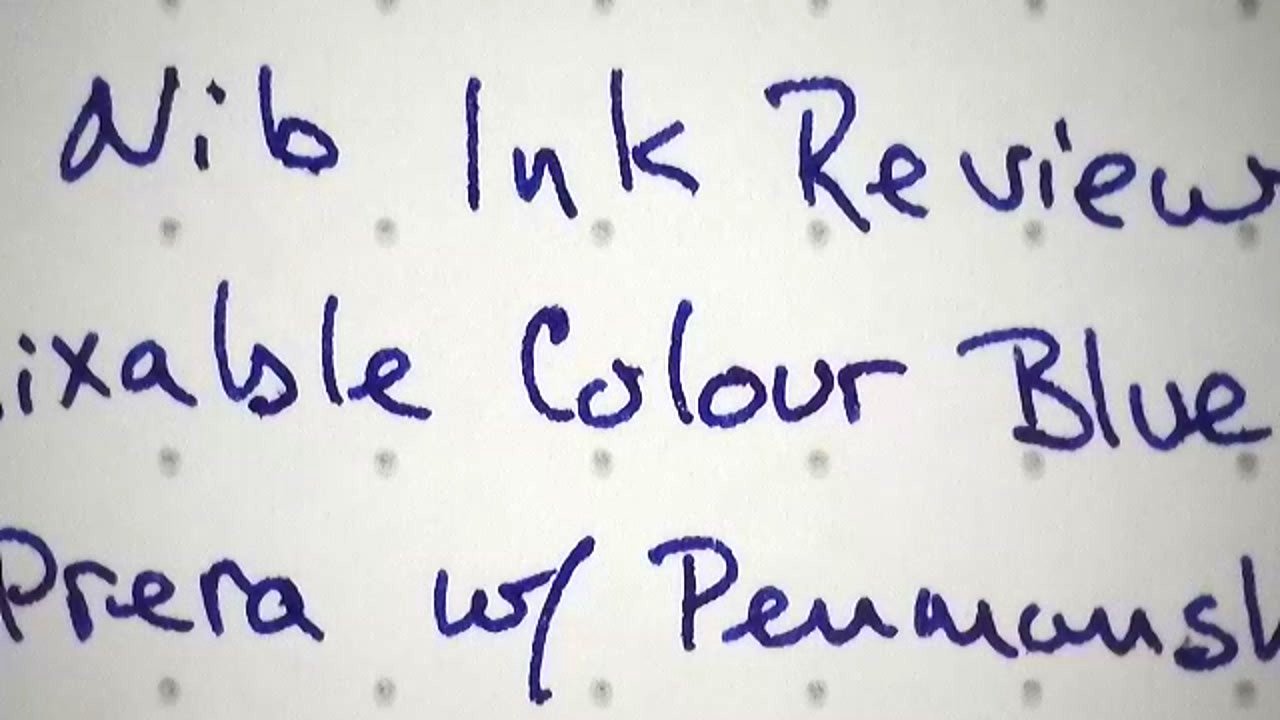 Nib Ink Review
ixable Colour Blue
Prera w/ Penmansh